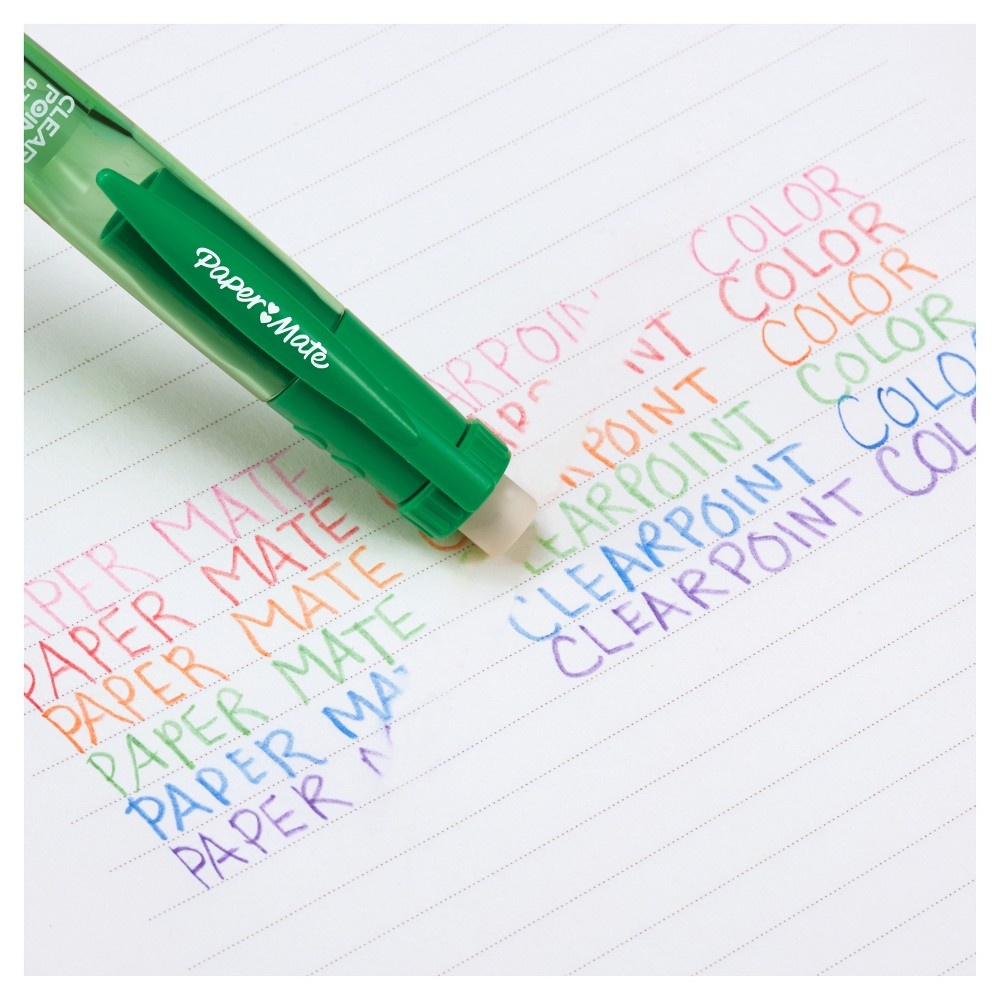 CLEAR
POINT
0.7
Paper Mate
APER MATE EARPOIN COLOR
PAPER MATE ARP NT COLOR
PAPER MATE C POINT COLOR
PAPER MATE LEARPOINT COLOR
PAPER MA CLEARPOINT COLO
PAPER M CLEARPOINT COL